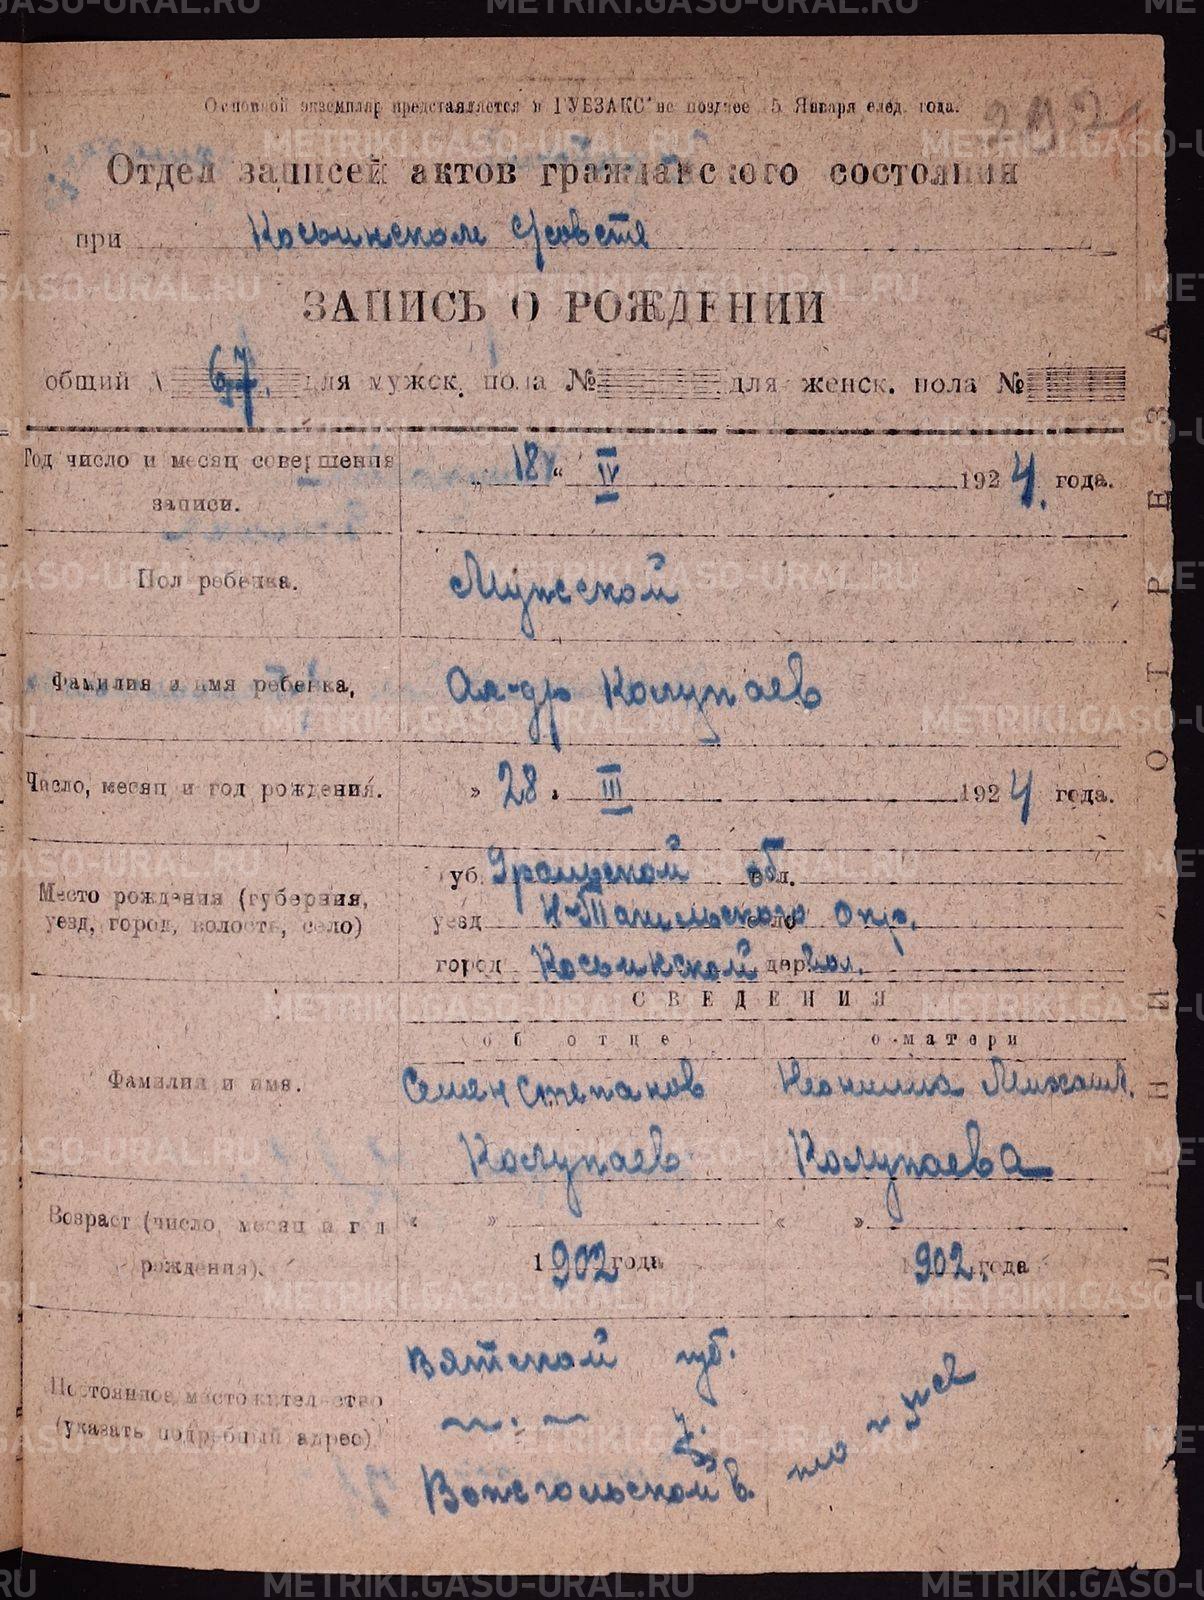 METRIKI.GASO-URAL.RU
Основной экземпляр представляется в ГУБЗАКС не позднее 15 Января след. года.
Отдел записей актов гражданского состояния
при Косьинском с/совете
ЗАПИСЬ О РОЖДЕНИИ
общий № 67. для мужск. пола № для женск. пола №
Год число и месяц совершения записи.
„ 18 “ IV 1924. года.
Пол ребенка.
Мужской
Фамилия и имя ребенка,
Ал-др Колупаев
Число, месяц и год рождения.
» 28 . III 1924 года.
Место рождения (губерния, уезд, город, волость, село)
губ. Уральской обл.
уезд Н-Тагильского село окр.
город Косьинской дер. вол.
СВЕДЕНИЯ
об отце
о матери
Фамилия и имя.
Семен Степанов
Колупаев
Неонилла Михайл.
Колупаева
Возраст (число, месяц и год рождения).
« »
1902 года
« »
1902. года
Постоянное местожительство (указать подробный адрес)
Вятской губ.
—„— у.
Вожгальской в.
то же
ЛИНИЯ ОТРЕЗА